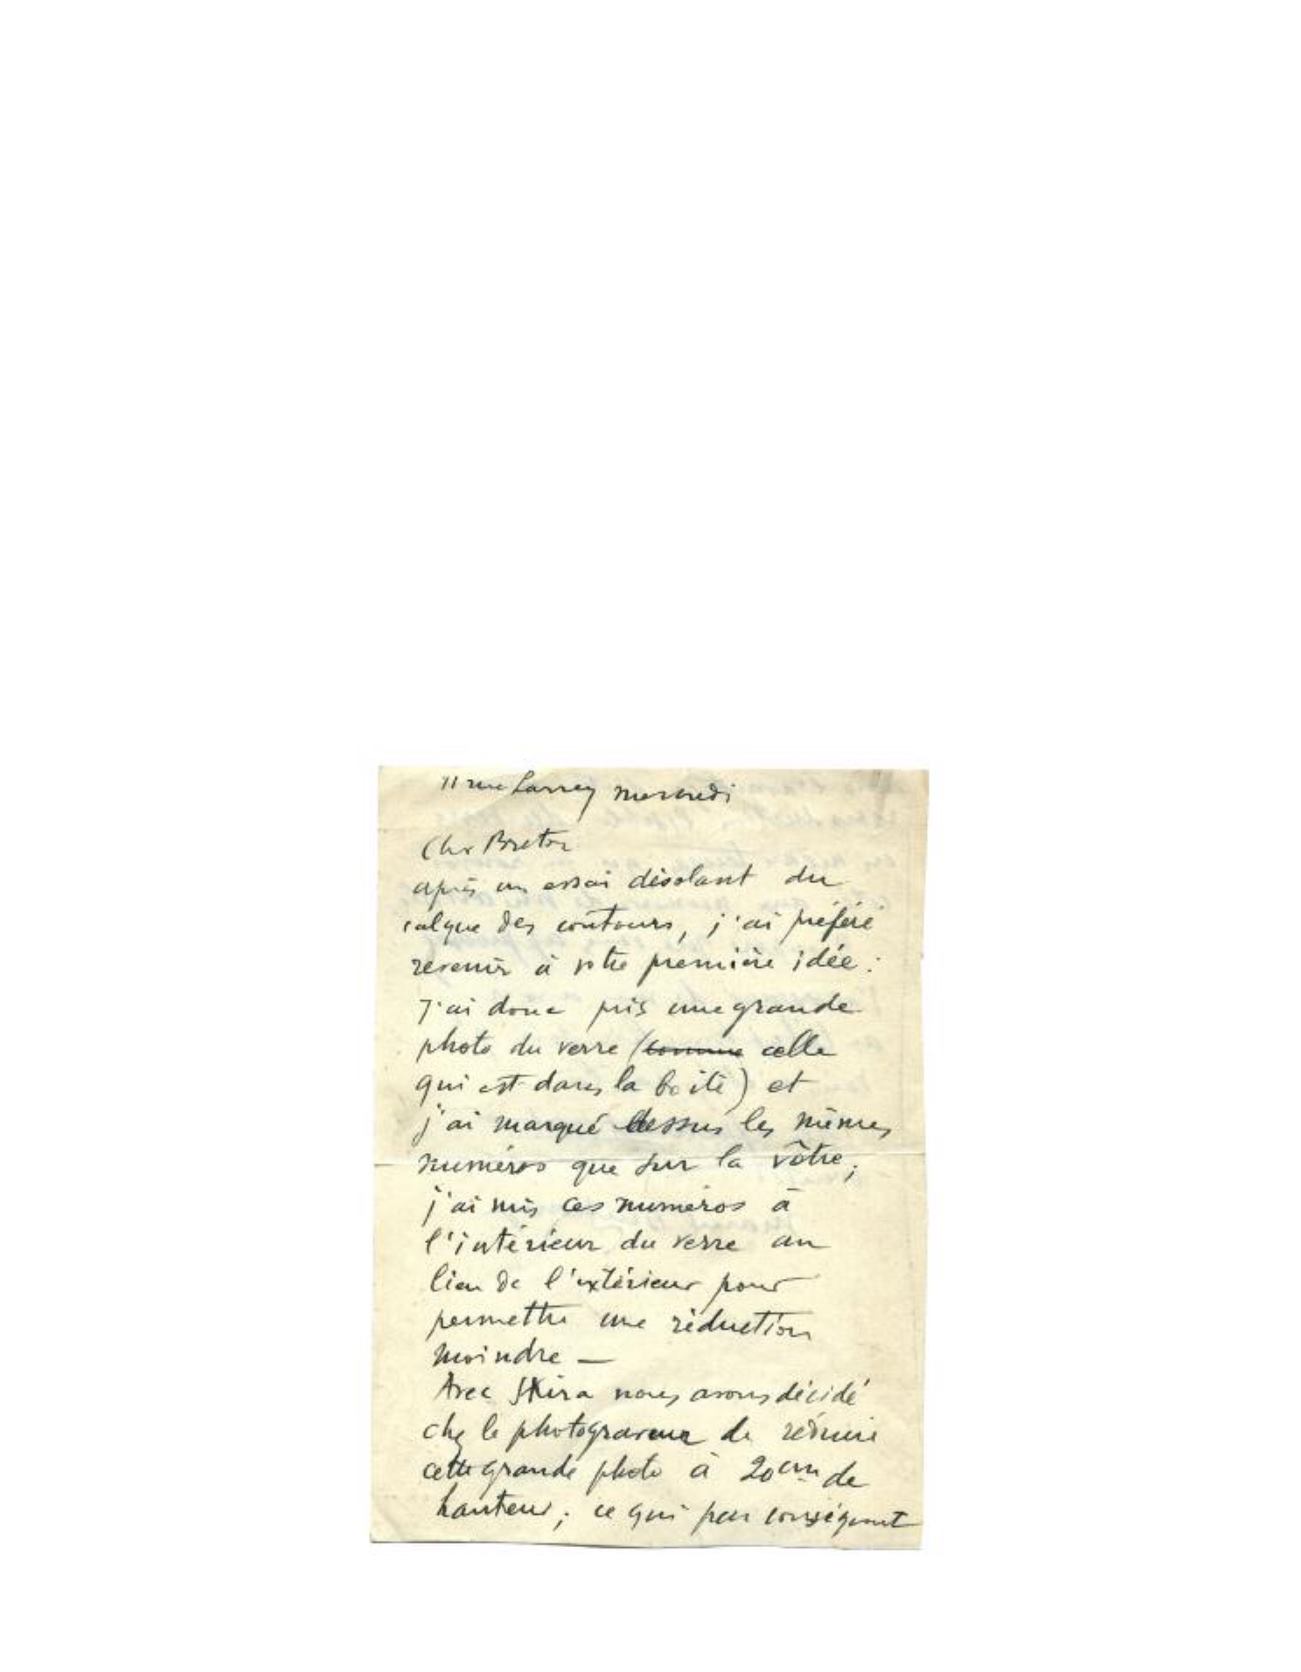 11 rue Larrey mercredi
Cher Breton
après un essai désolant du
calque des contours, j'ai préféré
revenir à votre première idée :
J'ai donc pris une grande
photo du verre (comme celle
qui est dans la boite) et
j'ai marqué dessus les mêmes
numéros que sur la vôtre ;
j'ai mis ces numéros à
l'intérieur du verre au
lieu de l'extérieur pour
permettre une réduction
moindre —
Avec Skira nous avons décidé
chez le photograveur de réduire
cette grande photo à 20 cm de
hauteur ; ce qui par conséquent